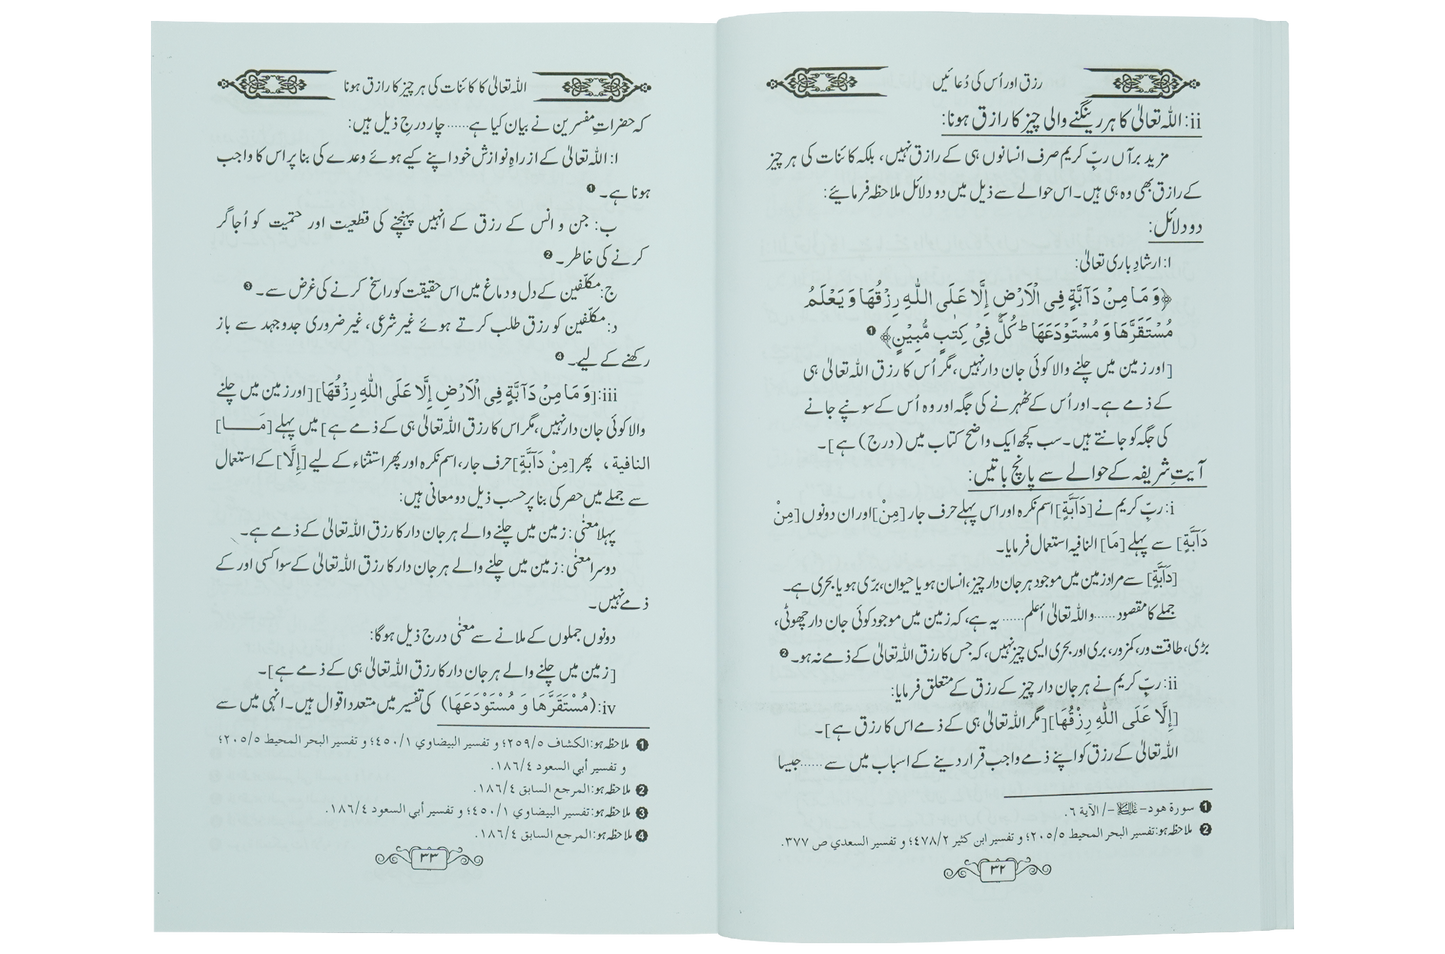 رزق اور اُس کی دُعائیں
ii: اللہ تعالیٰ کا ہر رینگنے والی چیز کا رازق ہونا:
مزید برآں ربِّ کریم صرف انسانوں ہی کے رازق نہیں، بلکہ کائنات کی ہر چیز
کے رازق بھی وہ ہی ہیں۔ اس حوالے سے ذیل میں دو دلائل ملاحظہ فرمائیے:
دو دلائل:
ا: ارشادِ باری تعالیٰ:
﴿وَمَا مِنْ دَآبَّةٍ فِي الْاَرْضِ اِلَّا عَلَى اللّٰهِ رِزْقُهَا وَيَعْلَمُ
مُسْتَقَرَّهَا وَمُسْتَوْدَعَهَا ؕ كُلٌّ فِيْ كِتٰبٍ مُّبِيْنٍ﴾ ❶
[اور زمین میں چلنے والا کوئی جان دار نہیں، مگر اُس کا رزق اللہ تعالیٰ ہی
کے ذمے ہے۔ اور اُس کے ٹھہرنے کی جگہ اور وہ اُس کے سونپے جانے
کی جگہ کو جانتے ہیں۔ سب کچھ ایک واضح کتاب میں (درج) ہے]۔
آیتِ شریفہ کے حوالے سے پانچ باتیں:
i: ربِّ کریم نے [دَآبَّةٍ] اسم نکرہ اور اس پہلے حرف جار [مِنْ] اور ان دونوں [مِنْ
دَآبَّةٍ] سے پہلے [مَا] النافیہ استعمال فرمایا۔
[دَآبَّةٍ] سے مراد زمین میں موجود ہر جان دار چیز، انسان ہو یا حیوان، برّی ہو یا بحری ہے۔
جملے کا مقصود...... واللہ تعالیٰ أعلم...... یہ ہے، کہ زمین میں موجود کوئی جان دار چھوٹی،
بڑی، طاقت ور، کمزور، بری اور بحری ایسی چیز نہیں، کہ جس کا رزق اللہ تعالیٰ کے ذمے نہ ہو۔ ❷
ii: ربِّ کریم نے ہر جان دار چیز کے رزق کے متعلق فرمایا:
[إِلَّا عَلَى اللّٰهِ رِزْقُهَا] [مگر اللہ تعالیٰ ہی کے ذمے اس کا رزق ہے]۔
اللہ تعالیٰ کے رزق کو اپنے ذمے واجب قرار دینے کے اسباب میں سے...... جیسا
❶ سورة هود - عليه السلام - / الآية ٦.
❷ ملاحظہ ہو: تفسير البحر المحيط ٢٠٥/٥؛ و تفسير ابن كثير ٤٧٨/٢؛ و تفسير السعدي ص ٣٧٧.
٣٢
اللہ تعالیٰ کا کائنات کی ہر چیز کا رازق ہونا
کہ حضراتِ مفسرین نے بیان کیا ہے...... چار درج ذیل ہیں:
ا: اللہ تعالیٰ کے از راہِ نوازش خود اپنے کیے ہوئے وعدے کی بنا پر اس کا واجب
ہونا ہے۔ ❶
ب: جن و انس کے رزق کے انہیں پہنچنے کی قطعیت اور حتمیت کو اُجاگر
کرنے کی خاطر۔ ❷
ج: مکلّفین کے دل و دماغ میں اس حقیقت کو راسخ کرنے کی غرض سے۔ ❸
د: مکلّفین کو رزق طلب کرتے ہوئے غیر شرعی، غیر ضروری جدوجہد سے باز
رکھنے کے لیے۔ ❹
iii: [وَمَا مِنْ دَآبَّةٍ فِي الْاَرْضِ إِلَّا عَلَى اللّٰهِ رِزْقُهَا] [اور زمین میں چلنے
والا کوئی جان دار نہیں، مگر اس کا رزق اللہ تعالیٰ ہی کے ذمے ہے] میں پہلے [مَــــا]
النافية، پھر [مِنْ دَآبَّةٍ] حرف جار، اسم نکرہ اور پھر استثناء کے لیے [إِلَّا] کے استعمال
سے جملے میں حصر کی بنا پر حسب ذیل دو معانی ہیں:
پہلا معنٰی: زمین میں چلنے والے ہر جان دار کا رزق اللہ تعالیٰ کے ذمے ہے۔
دوسرا معنٰی: زمین میں چلنے والے ہر جان دار کا رزق اللہ تعالیٰ کے سوا کسی اور کے
ذمے نہیں۔
دونوں جملوں کے ملانے سے معنٰی درج ذیل ہو گا:
[زمین میں چلنے والے ہر جان دار کا رزق اللہ تعالیٰ ہی کے ذمے ہے]۔
iv: (مُسْتَقَرَّهَا وَ مُسْتَوْدَعَهَا) کی تفسیر میں متعدد اقوال ہیں۔ انہی میں سے
❶ ملاحظہ ہو: الكشاف ٢٥٩/٥؛ و تفسير البيضاوي ٤٥٠/١؛ و تفسير البحر المحيط ٢٠٥/٥؛
و تفسير أبي السعود ١٨٦/٤.
❷ ملاحظہ ہو: المرجع السابق ١٨٦/٤.
❸ ملاحظہ ہو: تفسير البيضاوي ٤٥٠/١؛ و تفسير أبي السعود ١٨٦/٤.
❹ ملاحظہ ہو: المرجع السابق ١٨٦/٤.
٣٣